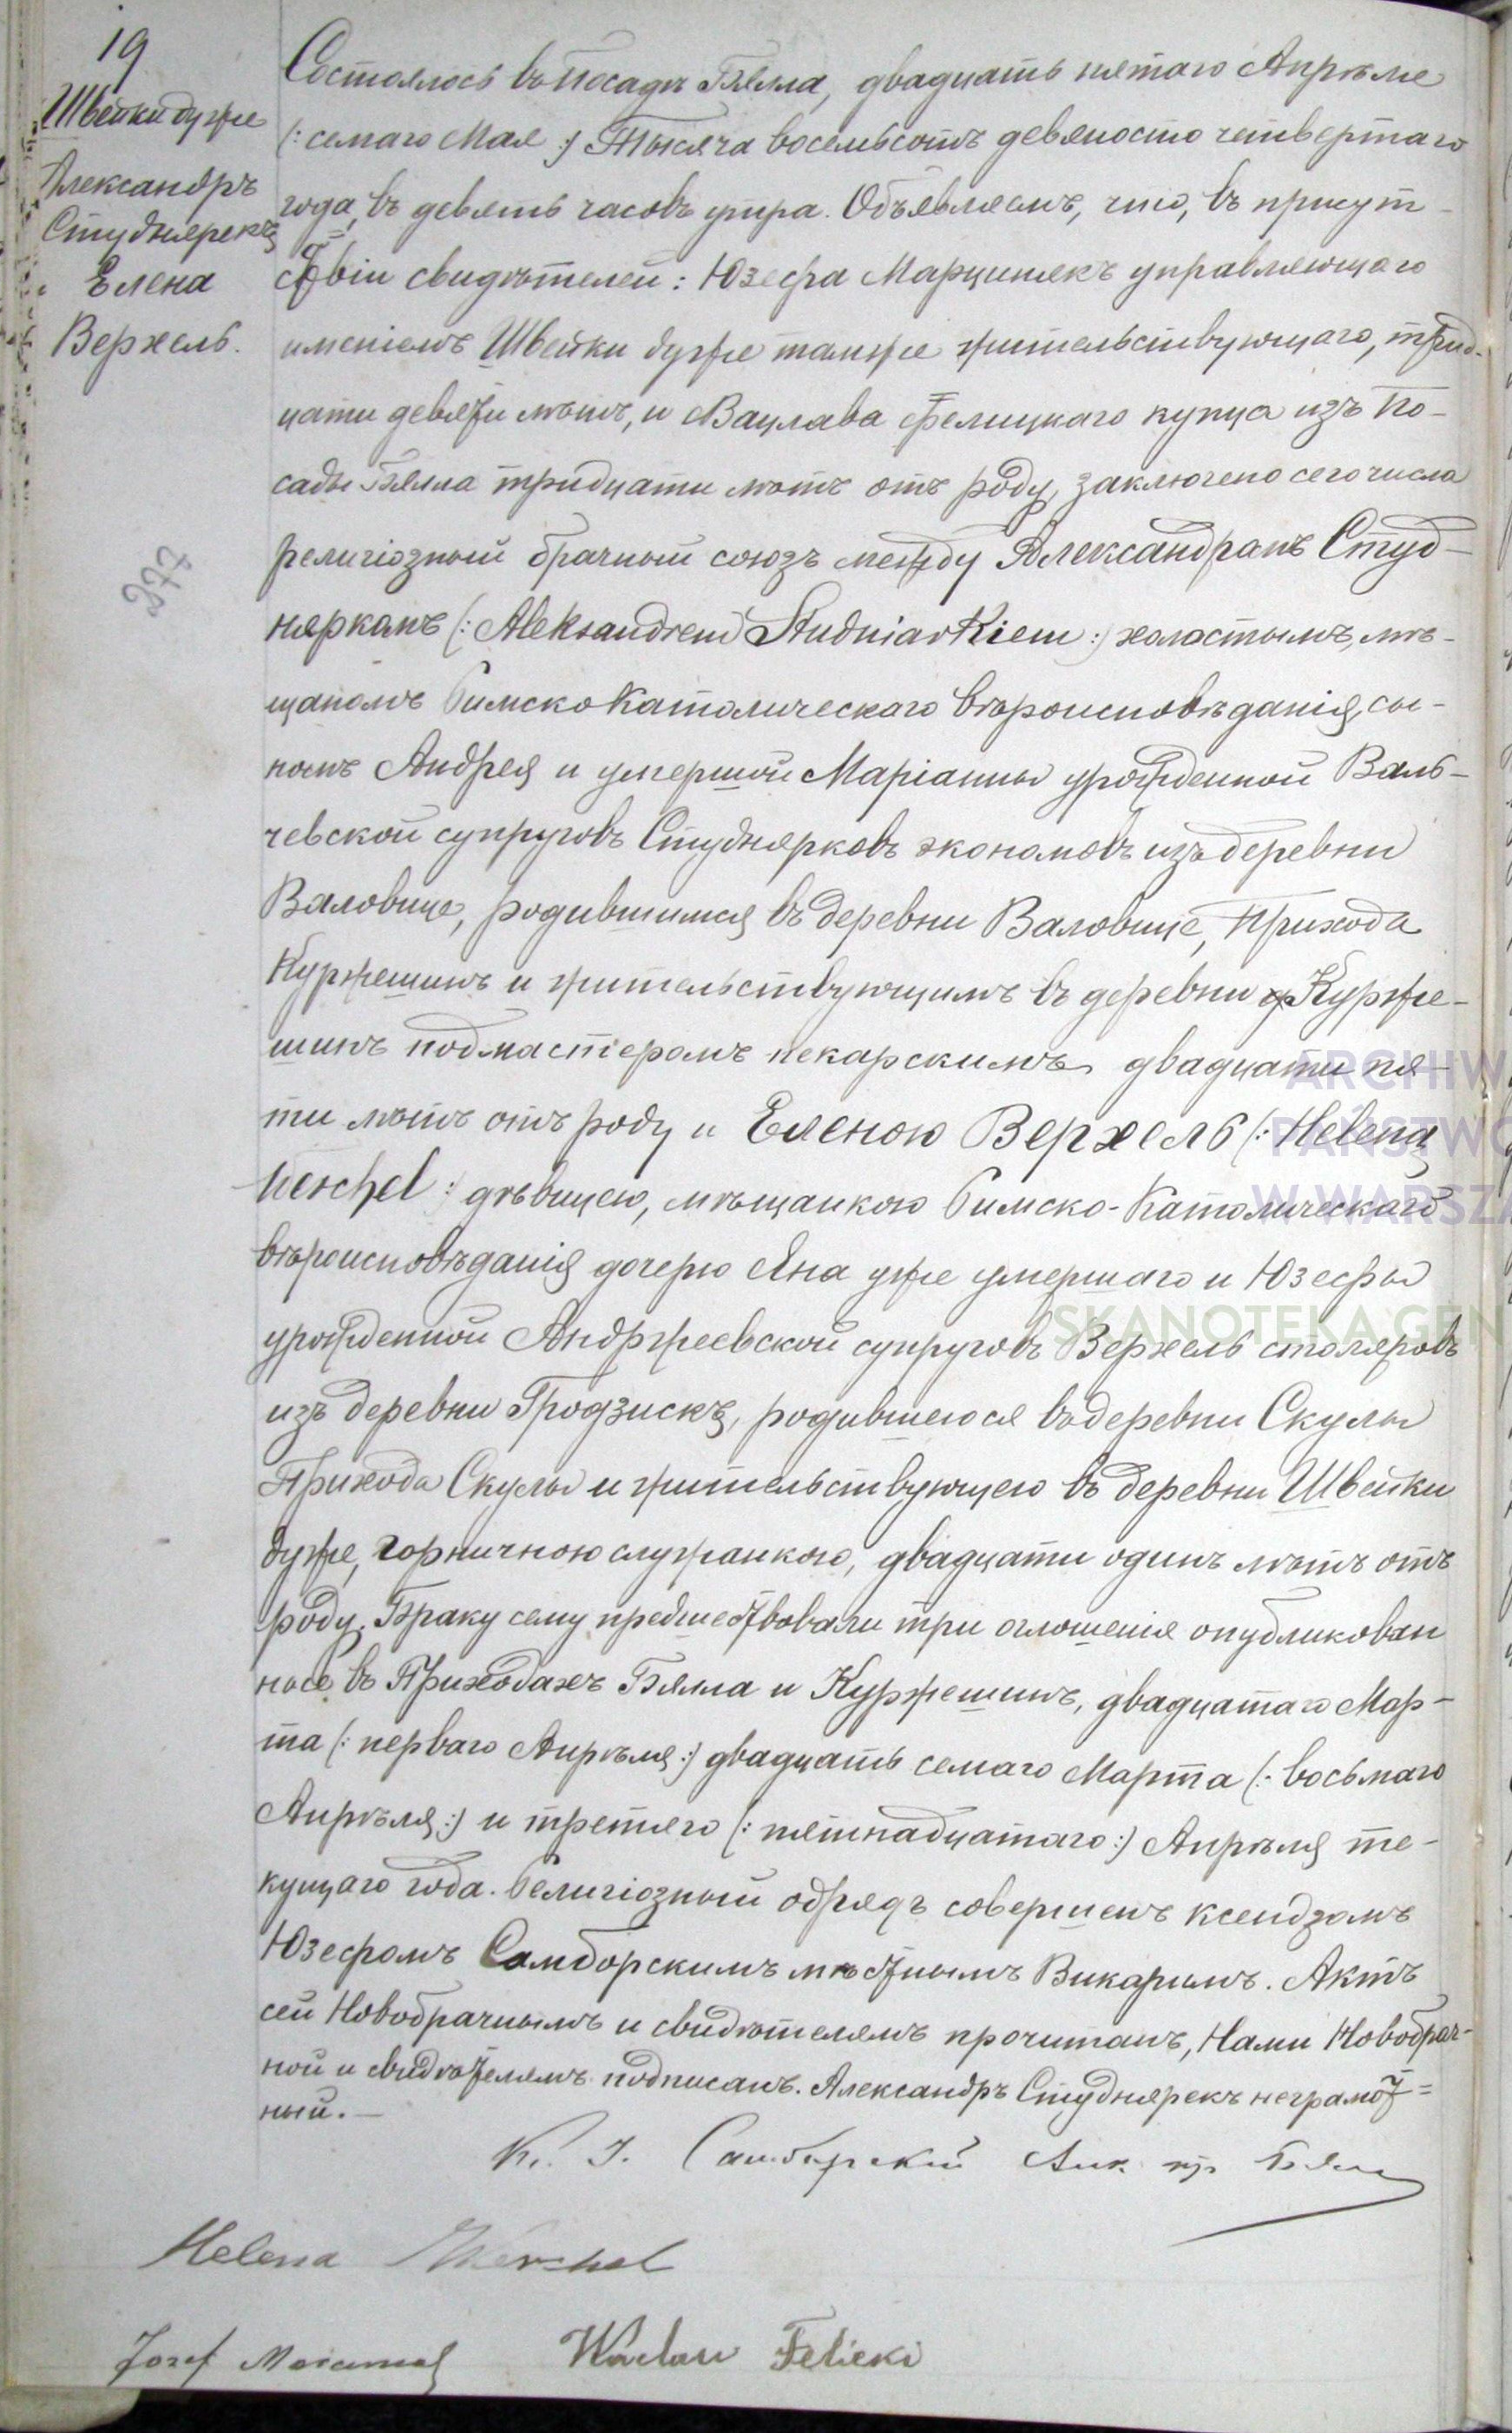 19
Швейки дуже
Александръ
Студнярекъ
и Елена
Верхель.
377
Состоялось въ посадѣ Бялла, двадцать пятаго Апрѣля
(: семаго Мая :) Тысяча восемьсотъ девяносто четвертаго
года, въ девять часовъ утра. Объявляемъ, что, въ присут-
ствіи свидѣтелей: Юзефа Марциняка управляющаго
имѣніемъ Швейки дуже тамже жительствующаго, трид-
цати девяти лѣтъ, и Вацлава Фелицкаго купца изъ По-
сады Бялла тридцати лѣтъ отъ роду, заключено сего числа
религіозный брачный союзъ между Александромъ Студ-
няркомъ (: Aleksandrem Studniarkiem :) холостымъ, мѣ-
щаномъ Римско Католическаго вѣроисповѣданія, сы-
номъ Андрея и умершой Маріанны урожденной Валь-
чевской супруговъ Студнярковъ экономовъ изъ деревни
Валовице, родившимся въ деревни Валовице, Прихода
Куржешинъ и жительствующимъ въ деревни Курже-
шинъ подмастеромъ пекарскимъ двадцати пя-
ти лѣтъ отъ роду и Еленою Верхель (: Helena
Werchel :) дѣвицею, мѣщанкою Римско-Католическаго
вѣроисповѣданія дочерю Яна уже умершаго и Юзефы
урожденной Андржеевской супруговъ Верхель столяровъ
изъ деревни Гродзискъ, родившеюся въ деревни Скулы
Прихода Скулы и жительствующею въ деревни Швейки
дуже, горничною служанкою, двадцати одинъ лѣтъ отъ
роду. Браку сему предшествовали три оглошенія опубликован
ные въ Приходахъ Бялла и Куржешинъ, двадцатаго Мар-
та (: перваго Апрѣля :) двадцать семаго Марта (: восьмаго
Апрѣля :) и третяго (: пятнадцатаго :) Апрѣля те-
кущаго года. Религіозный обрядъ совершенъ ксендзомъ
Юзефомъ Самборскимъ мѣстнымъ Викаримъ. Актъ
сей Новобрачнымъ и свидѣтелямъ прочитанъ, Нами Новобрач-
ной и свидѣтелямъ подписанъ. Александръ Студнярекъ неграмот=
ный. —
К. І. Самборскій пр. Бялла
Helena Werchel
Józef Wacław Felicki
ARCHIW
PAŃSTWO
W WARSZA
SKANOTEKA.GEN